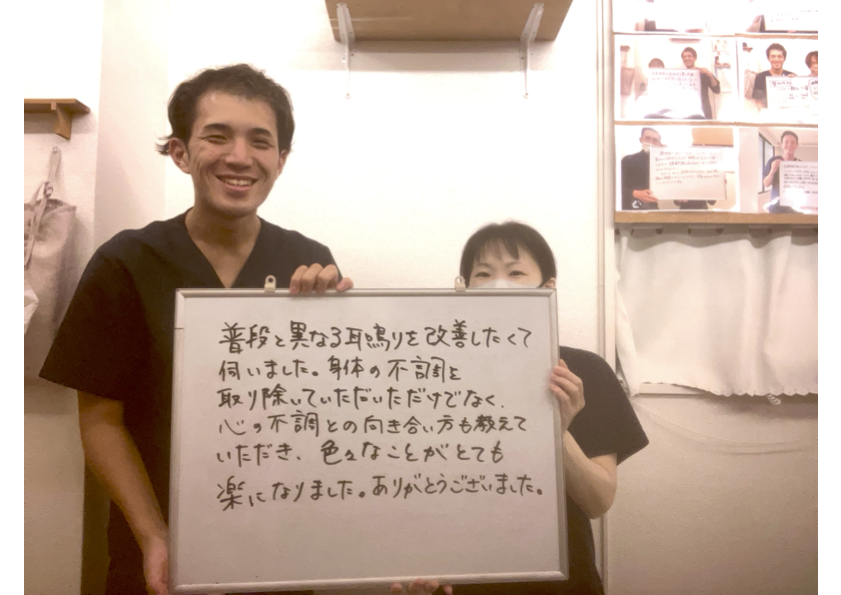 普段と異なる耳鳴りを改善したくて
伺いました。身体の不調を
取り除いていただいただけでなく、
心の不調との向き合い方も教えて
いただき、色々なことがとても
楽になりました。ありがとうございました。